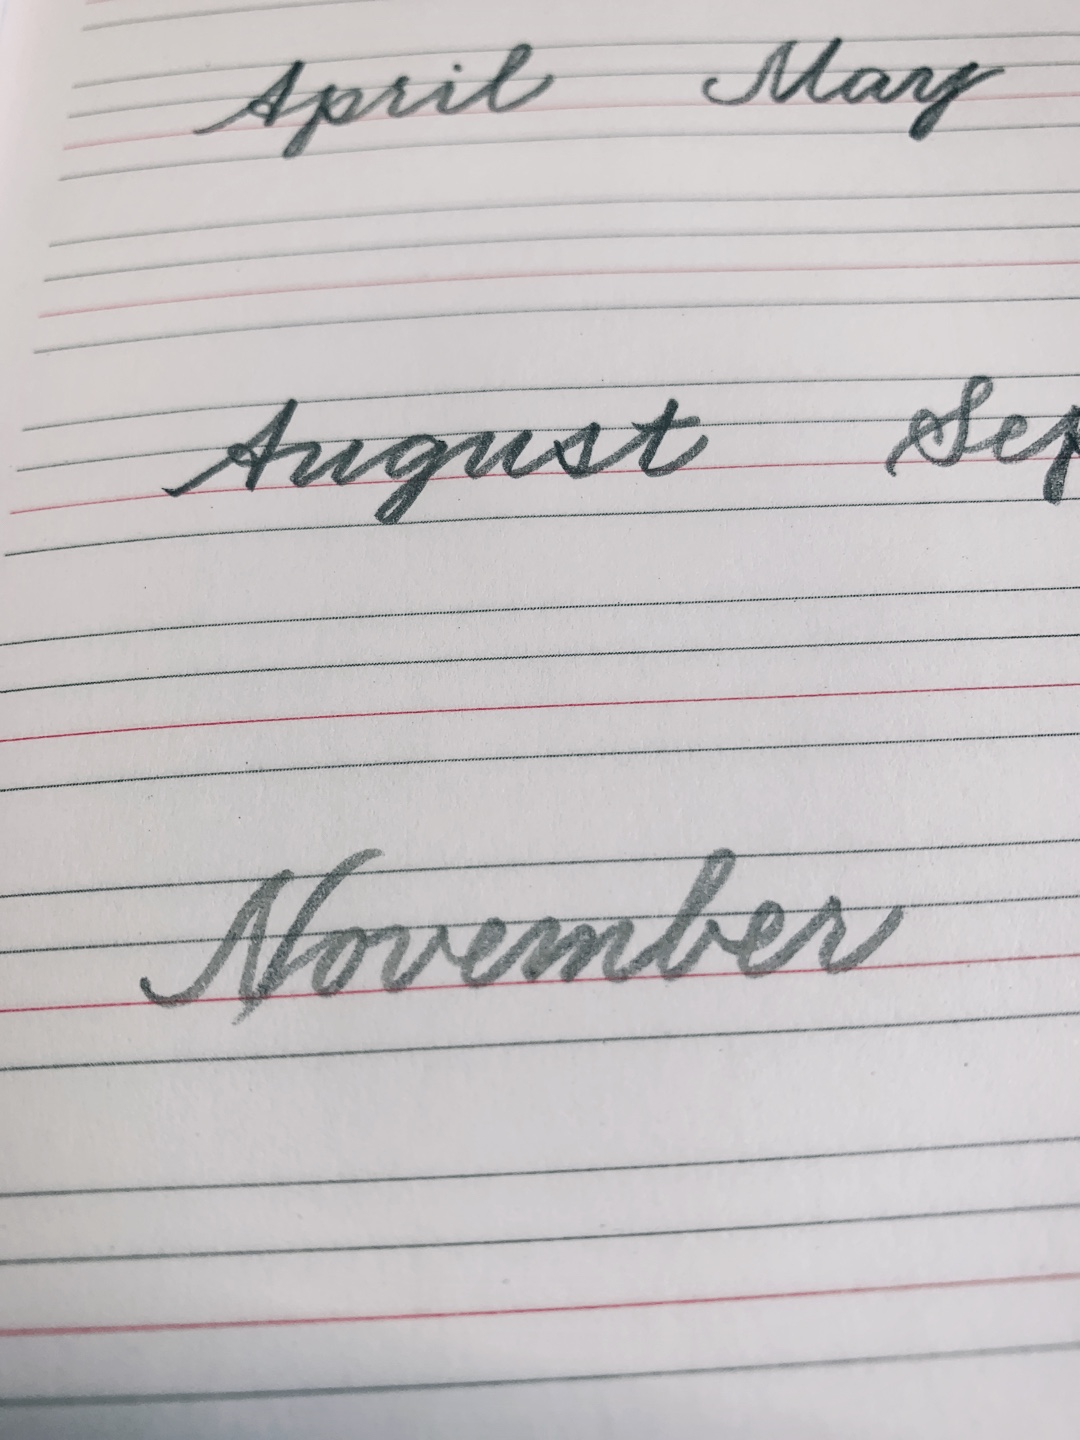 April May
August Sep
November